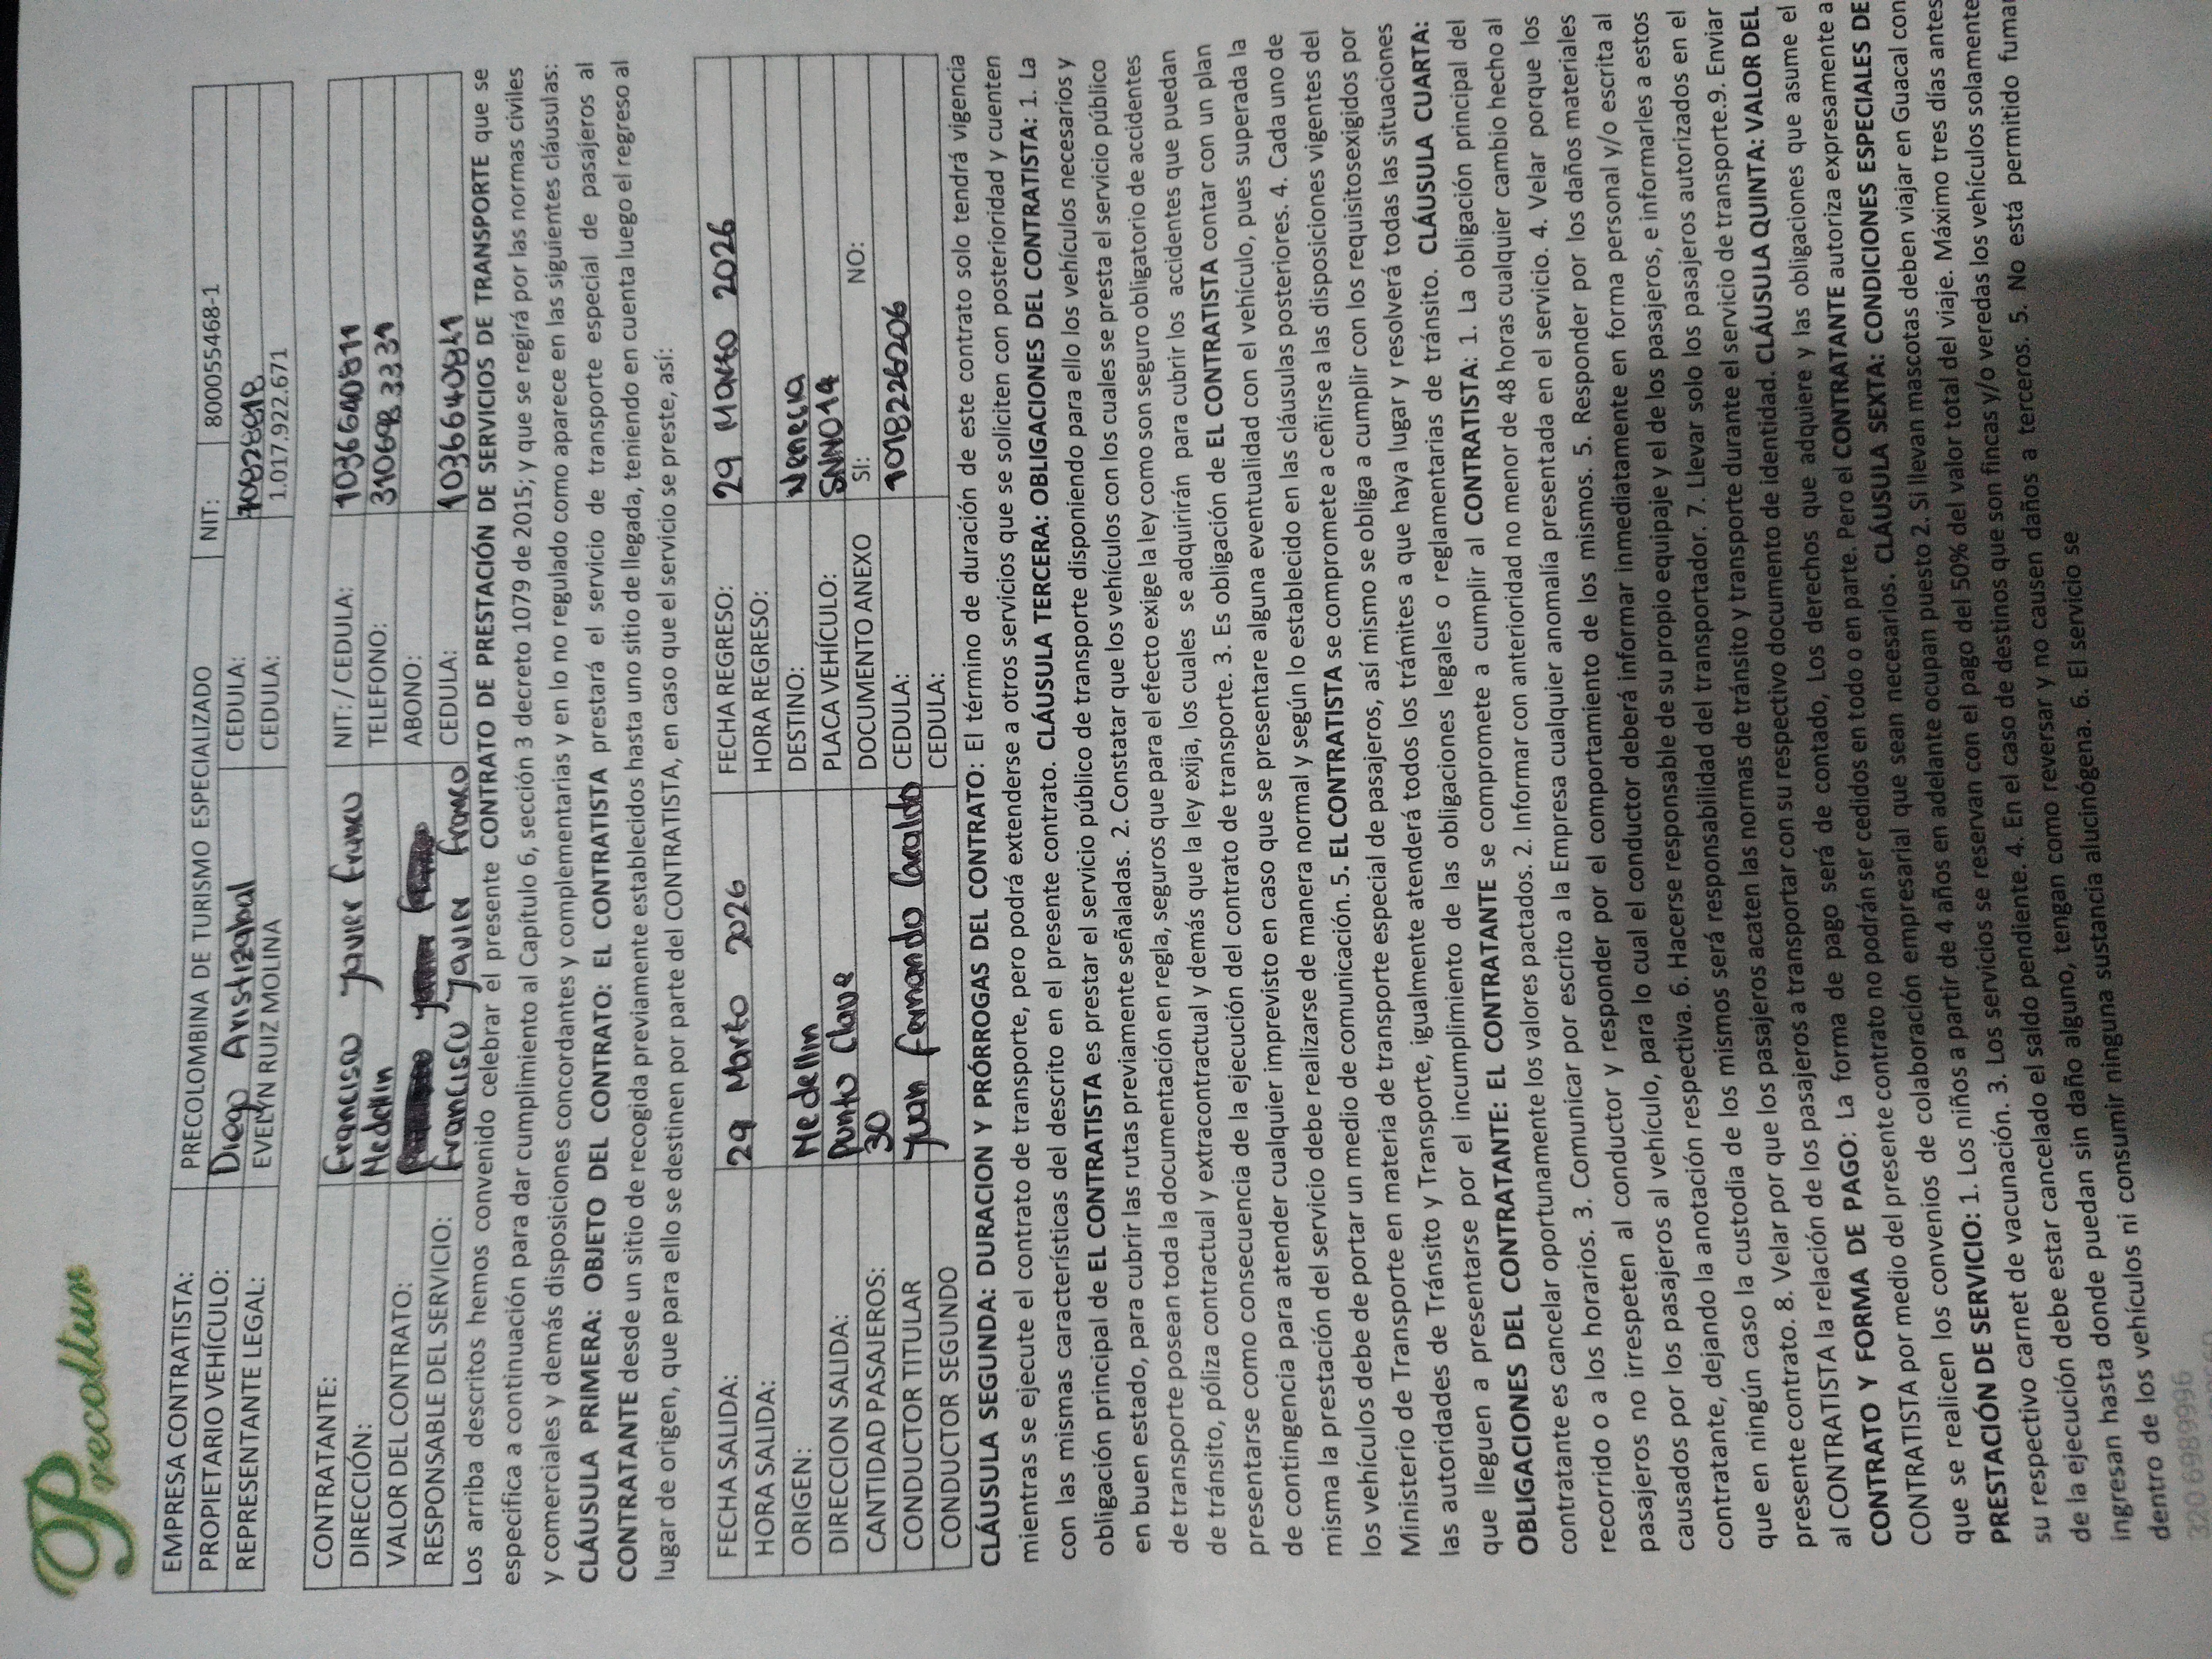 Precoltur
EMPRESA CONTRATISTA: PRECOLOMBINA DE TURISMO ESPECIALIZADO NIT: 800055468-1
PROPIETARIO VEHÍCULO: Diego Aristizabal CEDULA: 70828818
REPRESENTANTE LEGAL: EVELYN RUIZ MOLINA CEDULA: 1.017.922.671
CONTRATANTE: Francisco Javier Franco NIT: / CEDULA: 1036640811
DIRECCIÓN: Medellin TELEFONO: 3106983331
VALOR DEL CONTRATO: ABONO:
RESPONSABLE DEL SERVICIO: Francisco Javier Franco CEDULA: 1036640841
Los arriba descritos hemos convenido celebrar el presente CONTRATO DE PRESTACIÓN DE SERVICIOS DE TRANSPORTE que se
especifica a continuación para dar cumplimiento al Capítulo 6, sección 3 decreto 1079 de 2015; y que se regirá por las normas civiles
y comerciales y demás disposiciones concordantes y complementarias y en lo no regulado como aparece en las siguientes cláusulas:
CLÁUSULA PRIMERA: OBJETO DEL CONTRATO: EL CONTRATISTA prestará el servicio de transporte especial de pasajeros al
CONTRATANTE desde un sitio de recogida previamente establecidos hasta uno sitio de llegada, teniendo en cuenta luego el regreso al
lugar de origen, que para ello se destinen por parte del CONTRATISTA, en caso que el servicio se preste, así:
FECHA SALIDA: 29 Marzo 2026 FECHA REGRESO: 29 Marzo 2026
HORA SALIDA: HORA REGRESO:
ORIGEN: Medellin DESTINO: Venecia
DIRECCION SALIDA: Punto Clave PLACA VEHÍCULO: SNN014
CANTIDAD PASAJEROS: 30 DOCUMENTO ANEXO SI: NO:
CONDUCTOR TITULAR Juan Fernando Giraldo CEDULA: 1018226206
CONDUCTOR SEGUNDO CEDULA:
CLÁUSULA SEGUNDA: DURACION Y PRÓRROGAS DEL CONTRATO: El término de duración de este contrato solo tendrá vigencia
mientras se ejecute el contrato de transporte, pero podrá extenderse a otros servicios que se soliciten con posterioridad y cuenten
con las mismas características del descrito en el presente contrato. CLÁUSULA TERCERA: OBLIGACIONES DEL CONTRATISTA: 1. La
obligación principal de EL CONTRATISTA es prestar el servicio público de transporte disponiendo para ello los vehículos necesarios y
en buen estado, para cubrir las rutas previamente señaladas. 2. Constatar que los vehículos con los cuales se presta el servicio público
de transporte posean toda la documentación en regla, seguros que para el efecto exige la ley como son seguro obligatorio de accidentes
de tránsito, póliza contractual y extracontractual y demás que la ley exija, los cuales se adquirirán para cubrir los accidentes que puedan
presentarse como consecuencia de la ejecución del contrato de transporte. 3. Es obligación de EL CONTRATISTA contar con un plan
de contingencia para atender cualquier imprevisto en caso que se presentare alguna eventualidad con el vehículo, pues superada la
misma la prestación del servicio debe realizarse de manera normal y según lo establecido en las cláusulas posteriores. 4. Cada uno de
los vehículos debe de portar un medio de comunicación. 5. EL CONTRATISTA se compromete a ceñirse a las disposiciones vigentes del
Ministerio de Transporte en materia de transporte especial de pasajeros, así mismo se obliga a cumplir con los requisitosexigidos por
las autoridades de Tránsito y Transporte, igualmente atenderá todos los trámites a que haya lugar y resolverá todas las situaciones
que lleguen a presentarse por el incumplimiento de las obligaciones legales o reglamentarias de tránsito. CLÁUSULA CUARTA:
OBLIGACIONES DEL CONTRATANTE: EL CONTRATANTE se compromete a cumplir al CONTRATISTA: 1. La obligación principal del
contratante es cancelar oportunamente los valores pactados. 2. Informar con anterioridad no menor de 48 horas cualquier cambio hecho al
recorrido o a los horarios. 3. Comunicar por escrito a la Empresa cualquier anomalía presentada en el servicio. 4. Velar porque los
pasajeros no irrespeten al conductor y responder por el comportamiento de los mismos. 5. Responder por los daños materiales
causados por los pasajeros al vehículo, para lo cual el conductor deberá informar inmediatamente en forma personal y/o escrita al
contratante, dejando la anotación respectiva. 6. Hacerse responsable de su propio equipaje y el de los pasajeros, e informarles a estos
que en ningún caso la custodia de los mismos será responsabilidad del transportador. 7. Llevar solo los pasajeros autorizados en el
presente contrato. 8. Velar por que los pasajeros acaten las normas de tránsito y transporte durante el servicio de transporte.9. Enviar
al CONTRATISTA la relación de los pasajeros a transportar con su respectivo documento de identidad. CLÁUSULA QUINTA: VALOR DEL
CONTRATO Y FORMA DE PAGO: La forma de pago será de contado, Los derechos que adquiere y las obligaciones que asume el
CONTRATISTA por medio del presente contrato no podrán ser cedidos en todo o en parte. Pero el CONTRATANTE autoriza expresamente a
que se realicen los convenios de colaboración empresarial que sean necesarios. CLÁUSULA SEXTA: CONDICIONES ESPECIALES DE
PRESTACIÓN DE SERVICIO: 1. Los niños a partir de 4 años en adelante ocupan puesto 2. Si llevan mascotas deben viajar en Guacal con
su respectivo carnet de vacunación. 3. Los servicios se reservan con el pago del 50% del valor total del viaje. Máximo tres días antes
de la ejecución debe estar cancelado el saldo pendiente. 4. En el caso de destinos que son fincas y/o veredas los vehículos solamente
ingresan hasta donde puedan sin daño alguno, tengan como reversar y no causen daños a terceros. 5. No está permitido fumar
dentro de los vehículos ni consumir ninguna sustancia alucinógena. 6. El servicio se
320 6989996